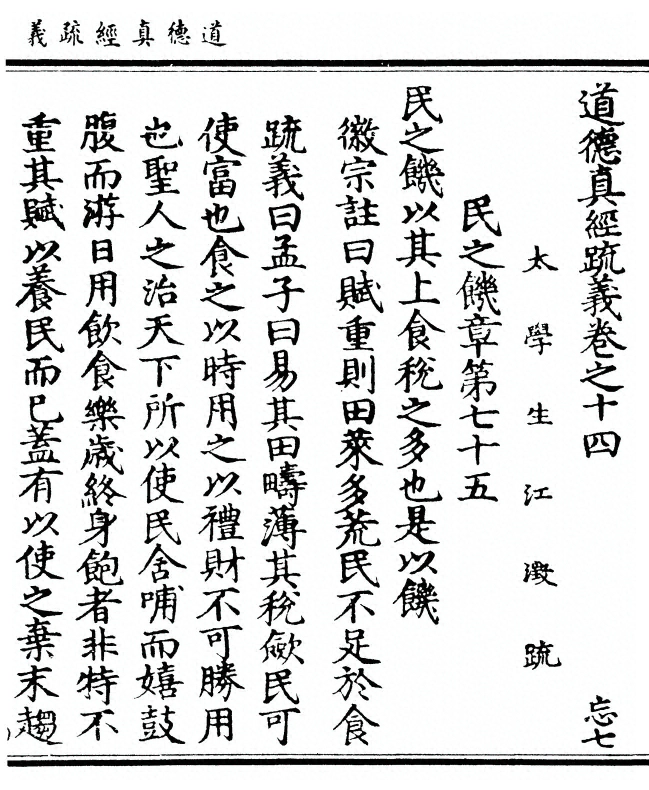 道德真經疏義
道德真經疏義卷之十四 忘七
太學生江澂疏
民之饑章第七十五
民之饑以其上食稅之多也是以饑
徽宗註曰賦重則田萊多荒民不足於食
疏義曰孟子曰易其田疇薄其稅斂民可
使富也食之以時用之以禮財不可勝用
也聖人之治天下所以使民含哺而嬉鼓
腹而游日用飲食樂歲終身飽者非特不
重其賦以養民而已蓋有以使之棄末趨